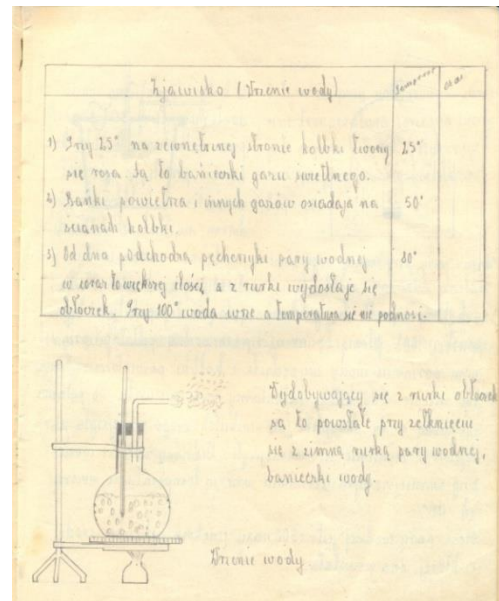 Zjawisko (Wrzenie wody) Temperat. Czas
1) Przy 25° na zewnętrznej stronie kolbki tworzy 25°
się rosa. Są to bańieczki gazu świetlnego.
2) Bańki powietrza i innych gazów osiadają na 50°
ścianach kolbki.
3) Od dna podchodzą pęcherzyki pary wodnej 80°
w coraz to większej ilości, a z rurki wydostaje się
obłoczek. Przy 100° woda wrze a temperatura się nie podnosi.
Wydobywający się z rurki obłoczek
są to powstałe przy zetknięciu
się z zimną rurką pary wodnej,
banieczki wody.
Wrzenie wody